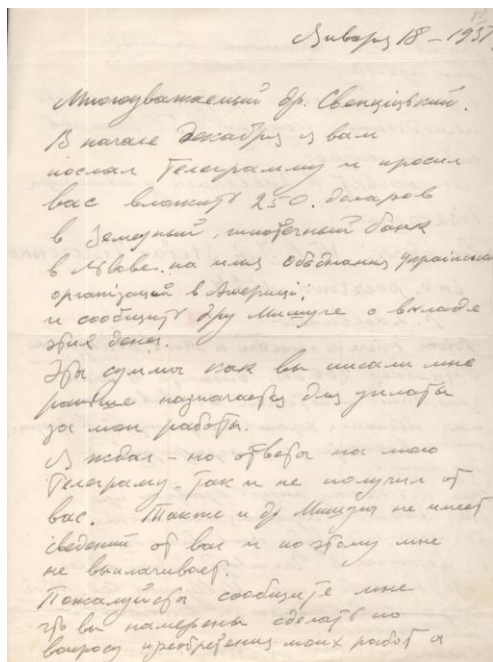 Января 18 – 1937.
Многоуважаемый др. Свенціцький.
В начале декабря я вам
послал Телеграмму и просил
вас вложить 250. доларов
в Земельный, ипотечный банк
в Львове. на имя Обьеднання Українських
організацій в Америці.
и сообщить дру Мишуге о вкладе
этих денег.
Эты суммы как вы писали мне
раньше назначается для уплаты
за мои работы.
Я ждал – но ответа на мою
Телеграму – так и не получил от
вас. Также и др Мишуга не имеет
сведений от вас и поэтому мне
не выплачивает.
Пожалуйста сообщите мне
что вы намерены сделать по
вопросу преобретения моих работ и